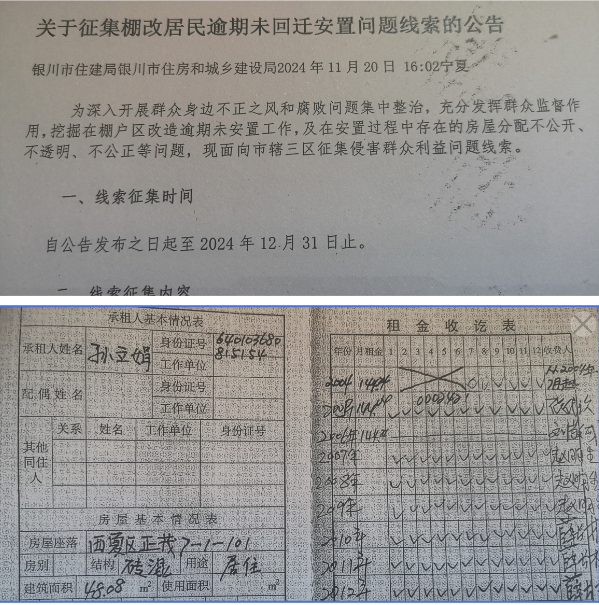 关于征集棚改居民逾期未回迁安置问题线索的公告
银川市住建局银川市住房和城乡建设局2024年11月20日 16:02宁夏
为深入开展群众身边不正之风和腐败问题集中整治，充分发挥群众监督作
用，挖掘在棚户区改造逾期未安置工作，及在安置过程中存在的房屋分配不公开、
不透明、不公正等问题，现面向市辖三区征集侵害群众利益问题线索。
一、线索征集时间
自公告发布之日起至2024年12月31日止。
二、线索征集内容
承租人基本情况表
承租人姓名 孙立娟 身份证号 640103680
815154
工作单位
配偶姓名 身份证号
工作单位
其他同住人 关系 姓名 工作单位 身份证号
房屋基本情况表
房屋座落 西夏区正茂7-1-101
房别 结构 砖混 用途 居住
建筑面积 48.08 m² 使用面积 m²
租金收讫表
年份 月租金 1 2 3 4 5 6 7 8 9 10 11 12 收费人
2004
0002421
2006年
2007年
2008年
2009年
2010年
2011年
2012年